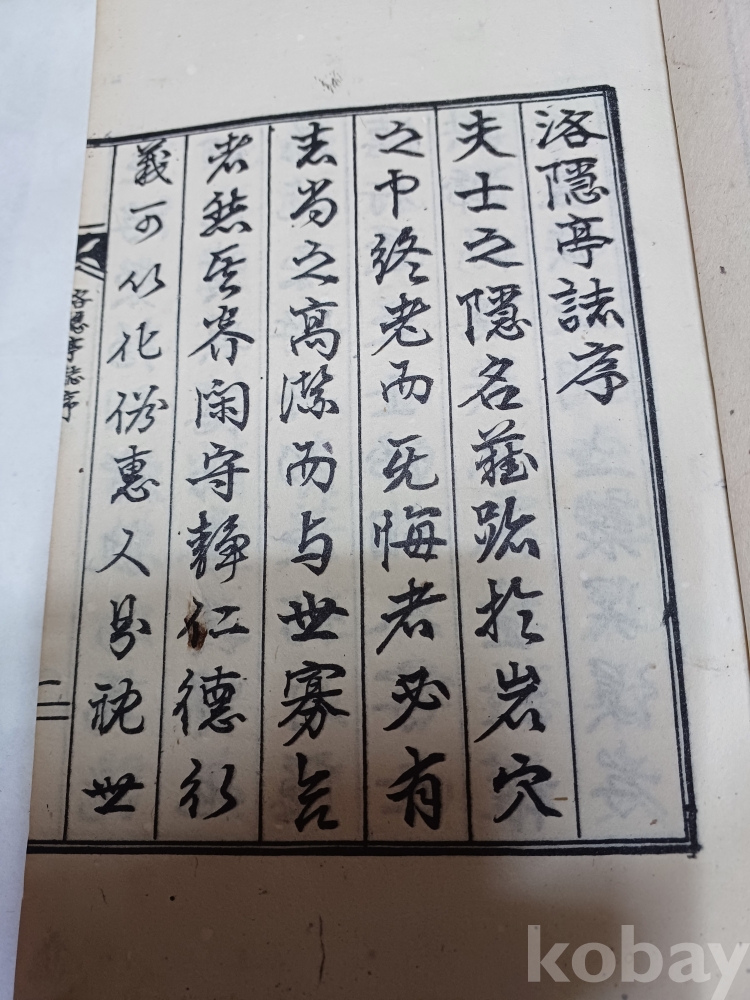 洛隱亭誌序
夫士之隱名藏跡於岩穴
之中終老而无悔者必有
志尚之高潔而与世寡合
者然其養閑守靜仁德行
義可以化俗惠人則視世
洛隱亭誌序
一
kobay